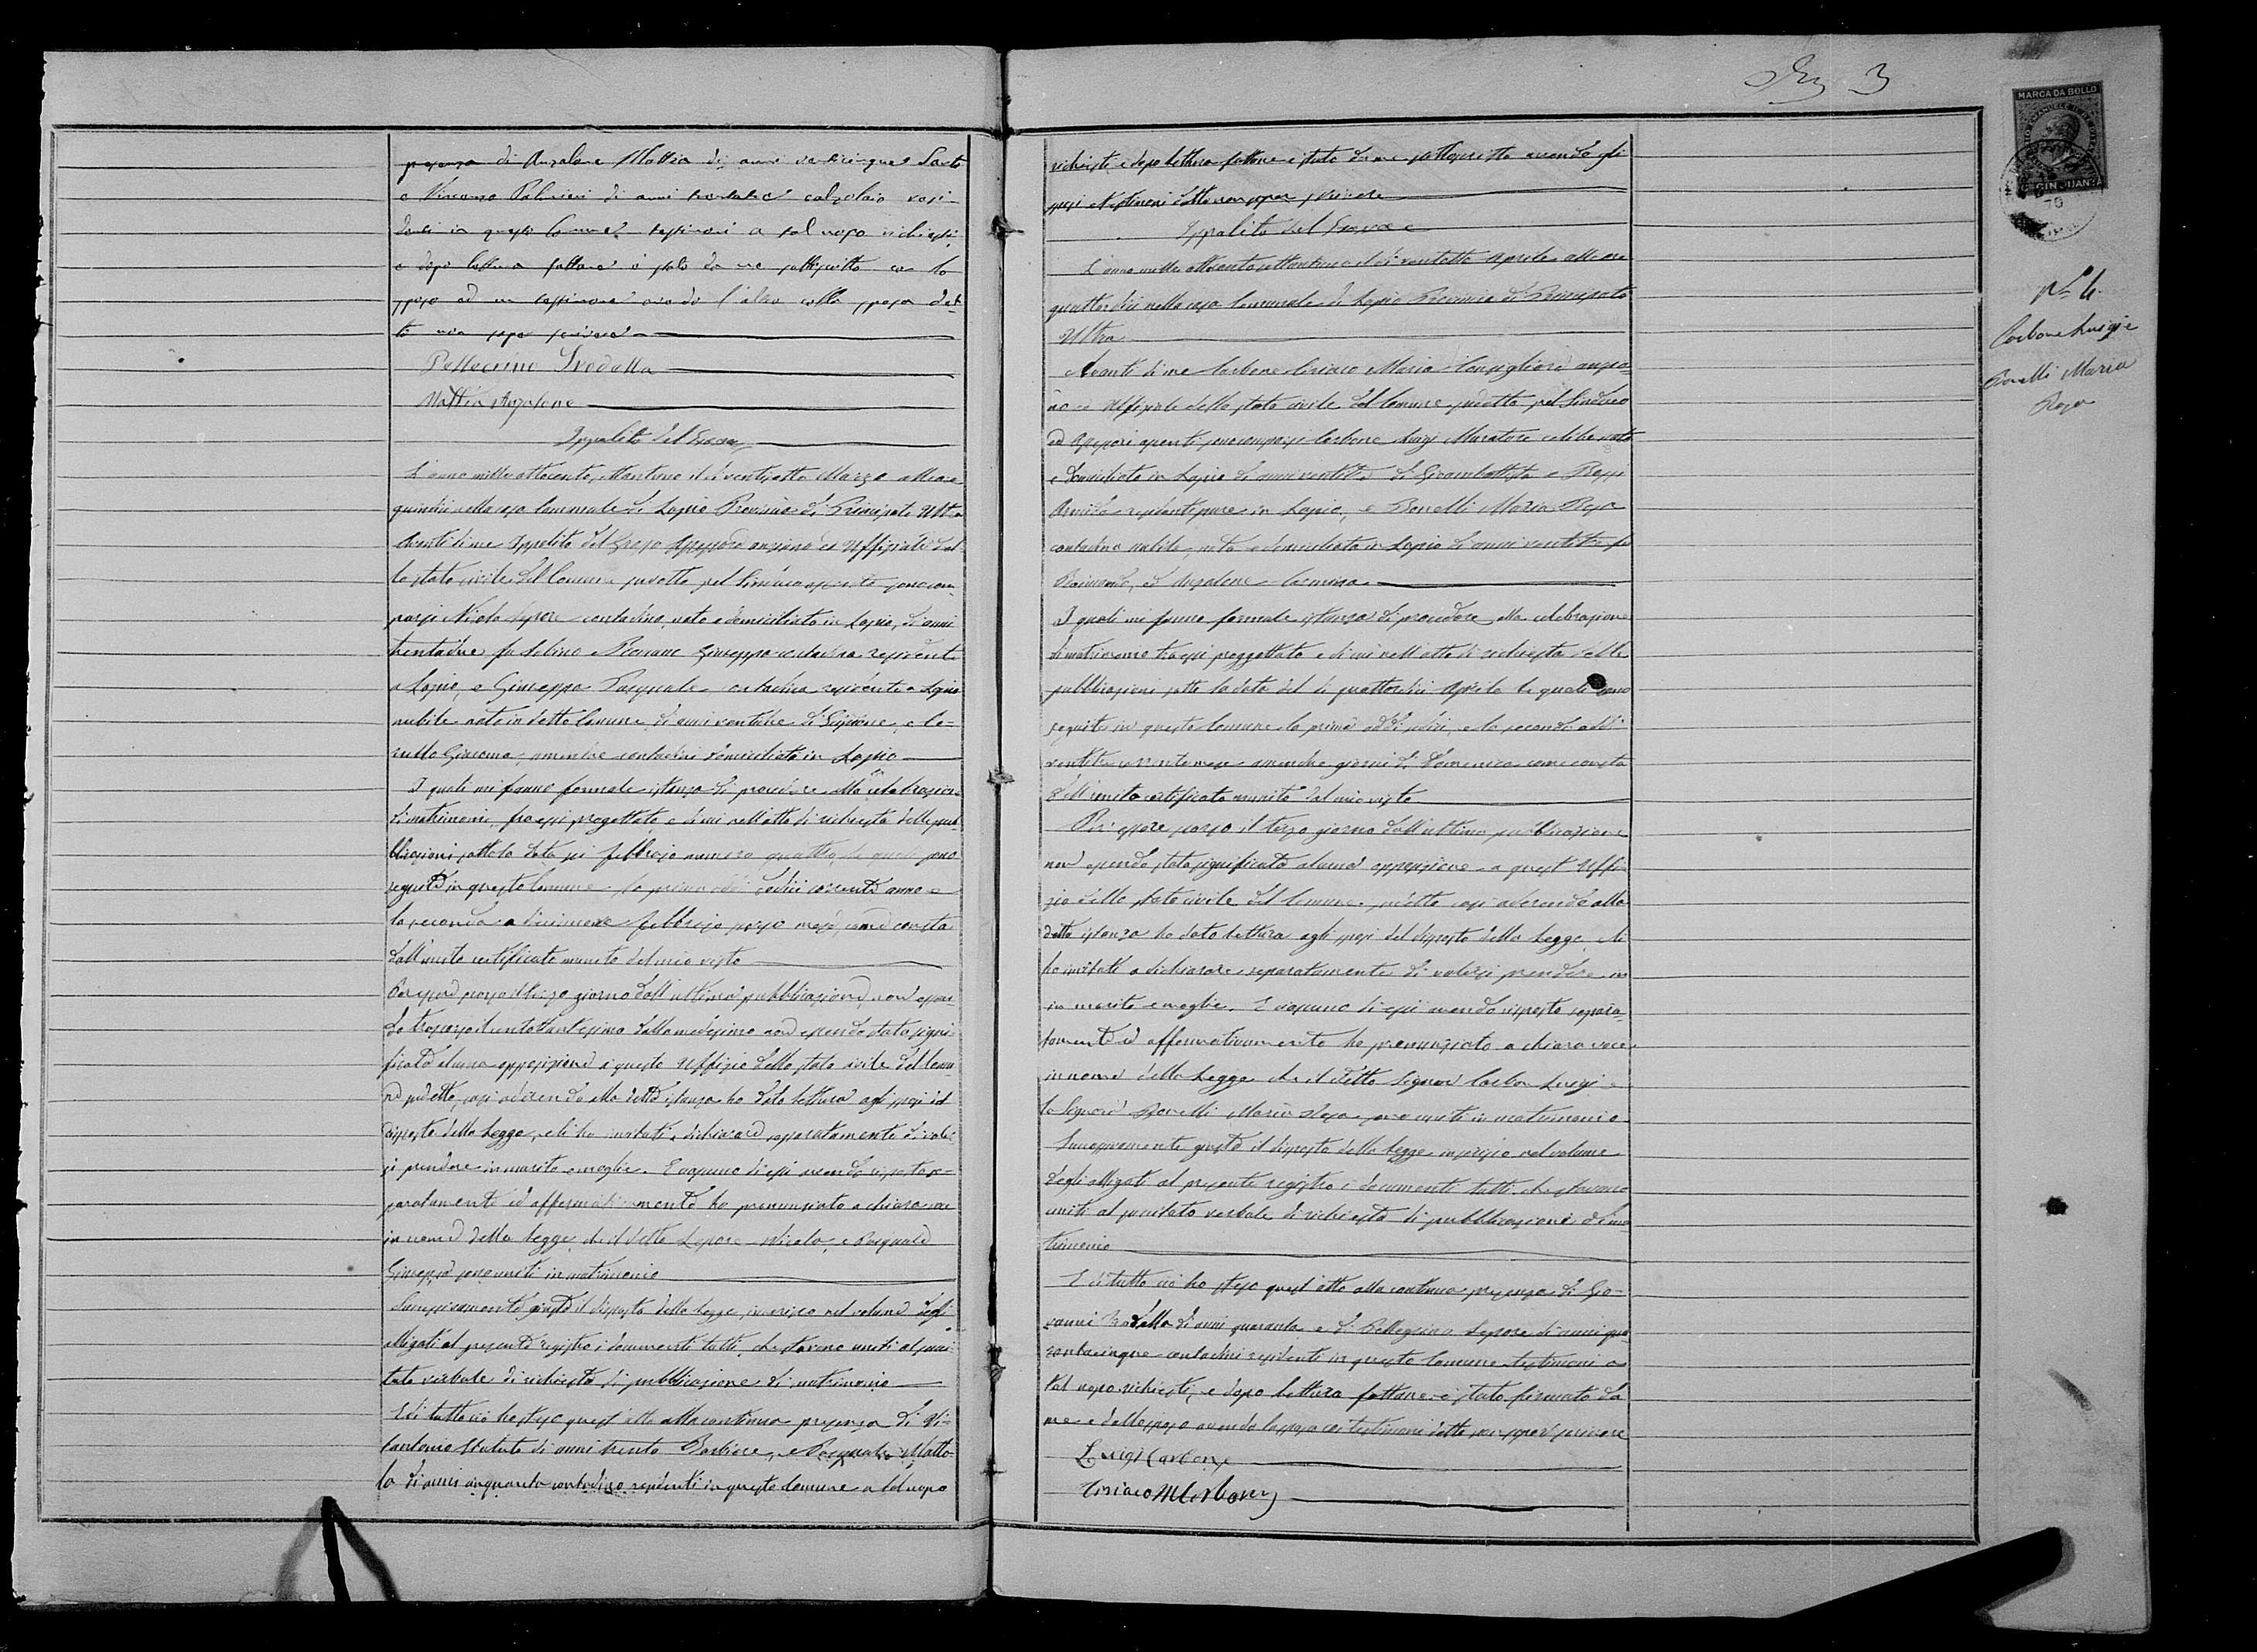 presenza di Anzalone Mattia di anni venticinque Sarto
e Vincenzo Palmieri di anni calzolaio resi-
denti in questo Comune testimoni a tal uopo richiesti,
e dopo lettura fattane è stato da me sottoscritto con lo
sposo ed un testimone avendo l'altro colla sposa det-
to non saper scrivere
Pellegrino Frodella
Mattia Anzalone
Ippolito del Grosso
L'anno mille ottocento settantuno il dì ventisette Marzo alle ore
quindici nella casa Comunale di Lapio Provincia di Principato Ultra
Avanti di me Ippolito del Grosso Assessore anziano ed Uffiziale del
lo stato civile del Comune suddetto pel Sindaco assente sono com-
parsi Nicola Lepore contadino, nato e domiciliato in Lapio, di anni
trentadue fu Sabino e Giuseppa contadina residente
a Lapio, e Giuseppa Pasquale contadina residente a Lapio
nubile nata in detto Comune, di anni ventidue di Scipione, e Ce-
rullo Giacoma, amendue contadini domiciliati in Lapio
I quali mi fanno formale istanza di procedere alla celebrazione
di matrimonio, fra essi progettato, e di cui nell'atto di richiesta delle pub-
blicazioni sotto la data sei febbrajo numero quattro, le quali sono
seguite in questo Comune la prima addì dodici corrente anno e
la seconda a diecinove febbrajo scorso mese, come consta
dall'unito certificato munito del mio visto
Per essere scorso il terzo giorno dall'ultima pubblicazione, non essen-
do trascorso il centottantesimo dalla medesima non essendo stata signi-
ficata alcuna opposizione a questo Uffizio dello stato civile del Comu-
ne suddetto, così aderendo alla detta istanza ho data lettura agli sposi del
disposto della Legge, e li ho invitati a dichiarare separatamente di voler-
si prendere in marito e moglie. E ognuno di essi avendo risposto se-
paratamente ed affermativamente ho pronunziato a chiara voce
in nome della Legge, che il detto Lepore Nicola, e Pasquale
Giuseppa sono uniti in matrimonio
Successivamente giusta il disposto della Legge, inserisco nel volume degli
allegati al presente registro i documenti tutti, che stavano uniti al preci-
tato verbale di richiesta di pubblicazione di matrimonio
E di tutto ciò ho steso quest'atto alla continua presenza di Vi-
tantonio di anni trenta Barbiere, e Pasquale Matto-
la di anni cinquanta contadino residenti in questo Comune a tal uopo
3
richiesti, e dopo lettura fattane è stato da me sottoscritto avendo gli
sposi e testimoni detto non saper scrivere
Ippolito del Grosso
L'anno mille ottocento settantuno il dì ventotto Aprile alle ore
quattordici nella casa Comunale di Lapio Provincia di Principato
Ultra
Avanti di me Carbone Ciriaco Maria Consigliere anzia-
no ed Uffiziale dello stato civile del Comune suddetto pel Sindaco
ed Assessori assenti sono comparsi Carbone Luigi Muratore celibe nato
e domiciliato in Lapio di anni di Giovambattista e
residenti pure in Lapio, e Bonelli Maria Rosa
contadina nubile, nata e domiciliata in Lapio di anni ventitre fu
Raimondo, ed Anzalone Carmina
I quali mi fanno formale istanza di procedere alla celebrazione
di matrimonio tra essi progettato e di cui nell'atto di richiesta delle
pubblicazioni sotto la data del dì quattordici Aprile le quali sono
seguite in questo Comune la prima addì sedici, e la seconda addì
ventitre corrente mese amendue giorni di Domenica come consta
dall'unito certificato munito dal mio visto
Per essere scorso il terzo giorno dall'ultima pubblicazione
non essendo stata significata alcuna opposizione a quest'Uffi-
zio dello stato civile del Comune suddetto così aderendo alla
detta istanza ho dato lettura agli sposi del disposto della Legge, e li
ho invitati a dichiarare separatamente di volersi prendere in
in marito e moglie. E ognuno di essi avendo risposto separa-
tamente ed affermativamente ho pronunziato a chiara voce
in nome della Legge che il detto Signor Carbone Luigi e
la Signora Bonelli Maria Rosa sono uniti in matrimonio
Successivamente giusta il disposto della Legge inserisco nel volume
degli allegati al presente registro i documenti tutti che stavano
uniti al precitato verbale di richiesta di pubblicazione di ma
trimonio
E di tutto ciò ho steso quest'atto alla continua presenza di Gio-
vanni Frodella di anni quaranta e di Pellegrino Lepore di anni qua
rantacinque contadini residenti in questo Comune testimoni a
tal uopo richiesti, e dopo lettura fattane è stato firmato da
me e dallo sposo avendo la sposa coi testimoni detto non saper scrivere
Luigi Carbone
Ciriaco M Carbone
MARCA DA BOLLO
70
N. 4.
Carbone Luigi e
Bonelli Maria
Rosa